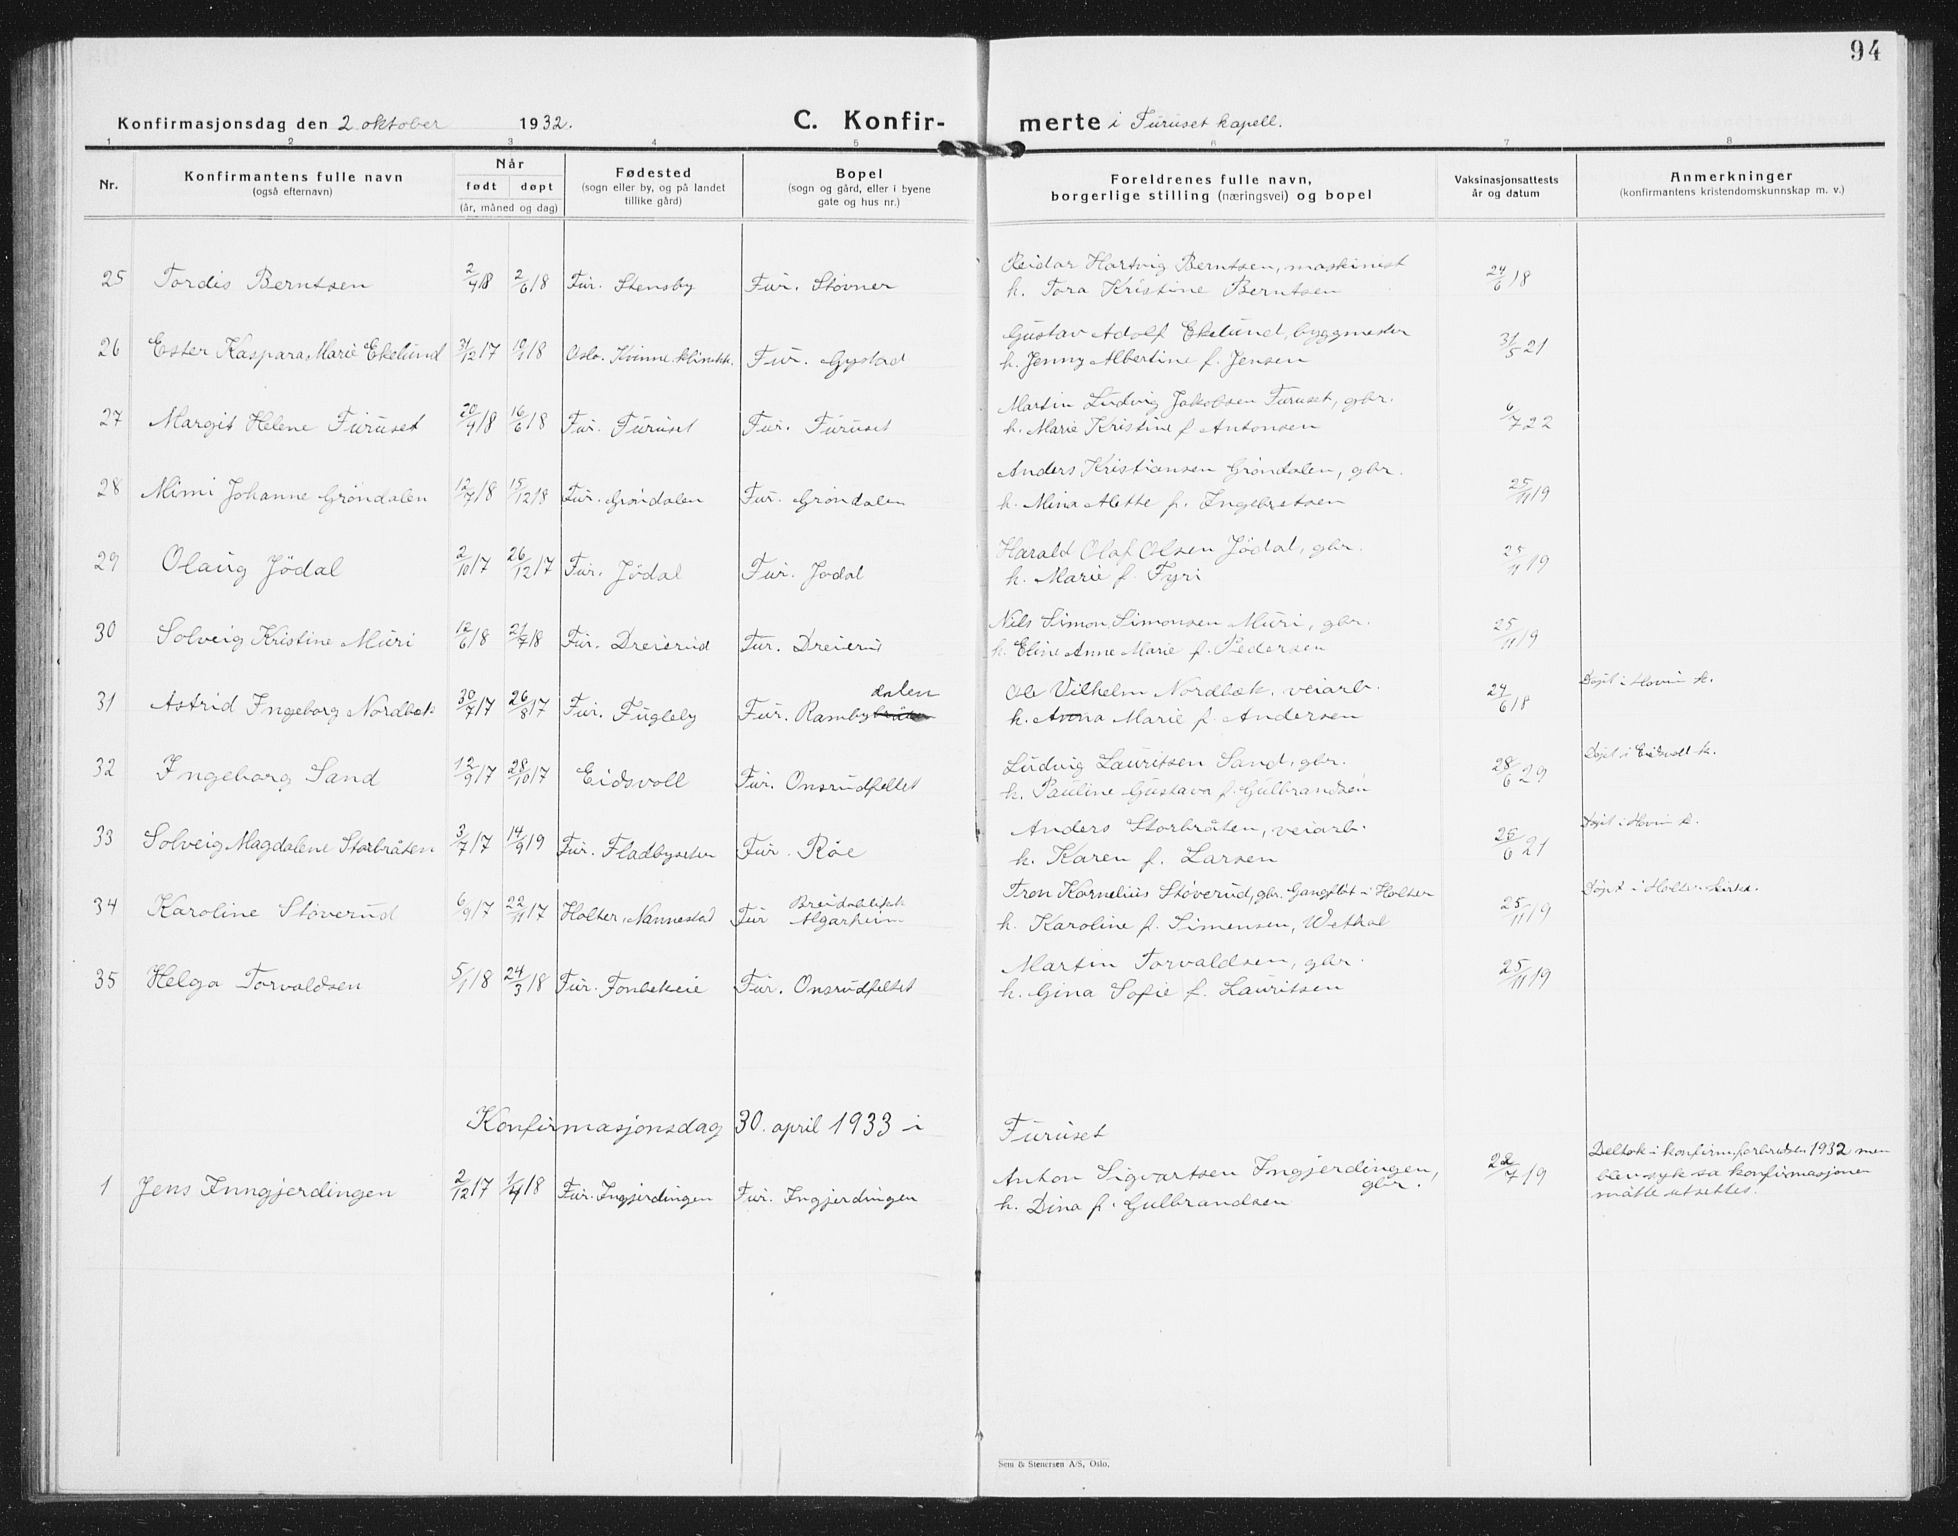 94
Konfirmasjonsdag den 2 oktober 1932. C. Konfir- merte i Furuset kapell.
1 2 3 4 5 6 7 8
Nr. Konfirmantens fulle navn (også efternavn) Når født døpt (år, måned og dag) Fødested (sogn eller by, og på landet tillike gård) Bopel (sogn og gård, eller i byene gate og hus nr.) Foreldrenes fulle navn, borgerlige stilling (næringsvei) og bopel Vaksinasjonsattests år og datum Anmerkninger (konfirmantens kristendomskunnskap m. v.)
Reidar Hartvig Berntsen, maskinist
25 Tordis Berntsen 2/4 18 2/6 18 Fur. Stensby Fur. Stovner h. Tora Kristine Berntsen 24/6 18
Gustav Adolf Ekelund, byggmester
26 Ester Kaspara Marie Ekelund 31/12 17 18 Oslo. Kvinneklinikk. Fur. Gystad h. Jenny Albertine f. Jensen 31/5 21
Martin Ludvig Jakobsen Furuset, gbr.
27 Margit Helene Furuset 20/4 18 16/6 18 Fur. Furuset Fur. Furuset h. Marie Kristine f. Antonsen 6/7 22
Anders Kristiansen Gröndalen, gbr.
28 Mimi Johanne Gröndalen 12/7 18 15/12 18 Fur. Gröndalen Fur. Gröndalen h. Mina Alette f. Ingebretsen 25/11 19
Harald Olaf Olsen Jödal, gbr.
29 Olaug Jödal 2/10 17 26/12 17 Fur. Jödal Fur. Jödal h. Marie f. Fyri 25/11 19
Nils Simon Simonsen Muri, gbr.
30 Solveig Kristine Muri 6 18 21/7 18 Fur. Dreierud Fur. Dreierud h. Eline Anne Marie f. Pedersen 25/11 19
dalen Ole Vilhelm Nordbæk, veiarb. Döpt i Hovin k.
31 Astrid Ingeborg Nordbæk 30/7 17 26/8 17 Fur. Fugleby Fur. Ramby h. Anna Marie f. Andersen 24/6 18
Ludvig Lauritsen Sand, gbr. Döpt i Eidsvoll k.
32 Ingeborg Sand 12/9 17 28/10 17 Eidsvoll Fur. Onsrudfeltet h. Pauline Gustava f. Gulbrandsen 28/6 29
Anders Storbråten, veiarb. Döpt i Hovin k.
33 Solveig Magdalene Storbråten 3/7 17 14/9 19 Fur. Fladbyseter Fur. Röe h. Karen f. Larsen 26/6 21
Tron Kornelius Stöverud, gbr. Gangflöt i Holter Döpt i Holter kirke.
34 Karoline Stöverud 6/9 17 22/11 17 Holter, Nannestad Fur Breidablikk Algarheim h. Karoline f. Simensen, Wethal 25/11 19
Martin Torvaldsen, gbr.
35 Helga Torvaldsen 5/1 18 24/3 18 Fur. Fonbekeie Fur. Onsrudfeltet h. Gina Sofie f. Lauritsen 25/11 19
Konfirmasjonsdag 30. april 1933 i Furuset
Anton Sigvartsen Ingjerdingen, gbr. Deltok i konfirm.forbredsen 1932 men
1 Jens Inngjerdingen 2/12 17 1/4 18 Fur. Ingjerdingen Fur. Ingjerdingen h. Dina f. Gulbrandsen 7 19 blev syk så konfirmasjonen
måtte utsettes.
Sem & Stenersen A/S, Oslo.